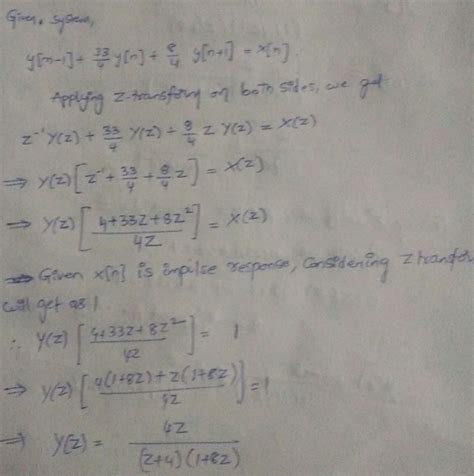 Given, system,
y[n-1] + 33/4 y[n] + 8/4 y[n+1] = x[n]
Applying z-transform on both sides, we get
z⁻¹ Y(z) + 33/4 Y(z) + 8/4 z Y(z) = X(z)
⇒ Y(z) [z⁻¹ + 33/4 + 8/4 z] = X(z)
⇒ Y(z) [(4+33z+8z²)/4z] = X(z)
⇒ Given x[n] is impulse response, considering z transfor
will get as 1
∴ Y(z) [(4+33z+8z²)/4z] = 1
⇒ Y(z) [(4(1+8z)+z(1+8z))/4z] = 1
⇒ Y(z) = 4z/((z+4)(1+8z))